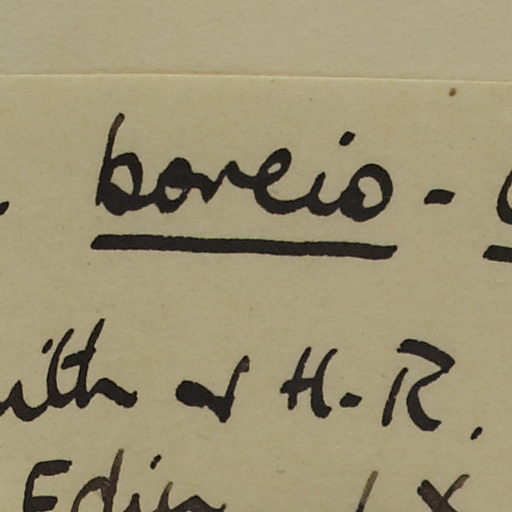 boreio-
& H.R.
Edin